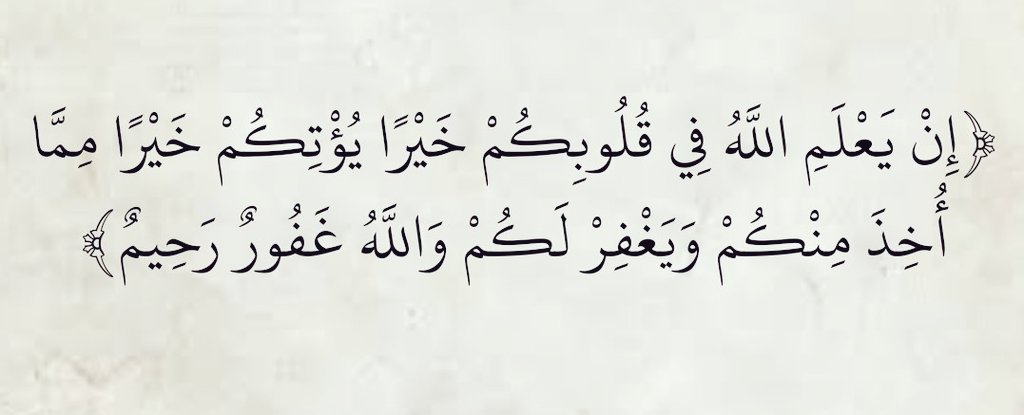 ﴿إِنْ يَعْلَمِ اللَّهُ فِي قُلُوبِكُمْ خَيْرًا يُؤْتِكُمْ خَيْرًا مِمَّا
أُخِذَ مِنْكُمْ وَيَغْفِرْ لَكُمْ وَاللَّهُ غَفُورٌ رَحِيمٌ﴾